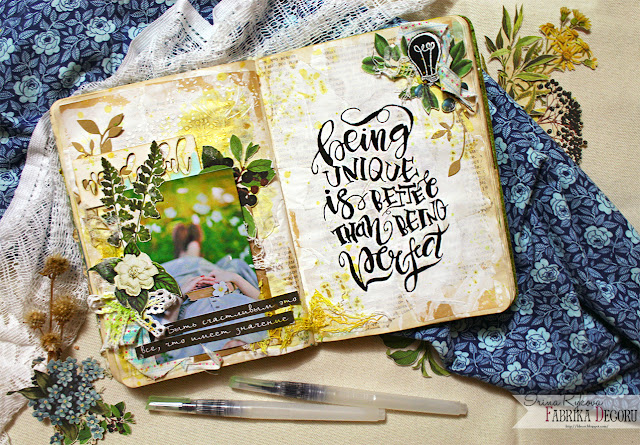 being
UNIQUE
is BETTER
THAN BEING
perfect
Быть счастливым это
все, что имеет значение
Irina Rycova
FABRIKA DECORU